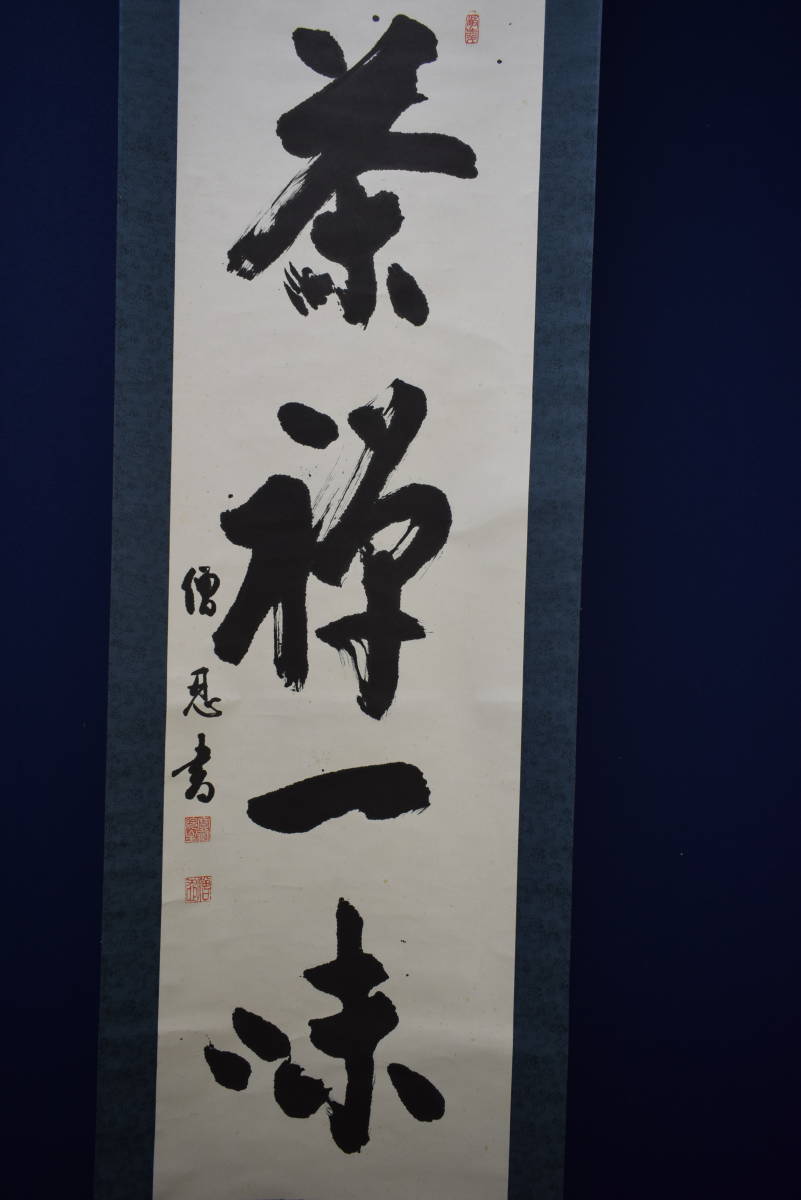 茶禅一味
僧忍書